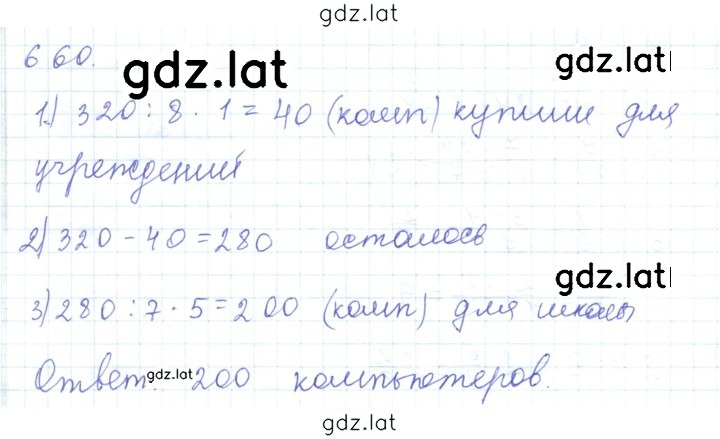 gdz.lat
660.
gdz.lat
gdz.lat
1) 320 : 8 · 1 = 40 (комп) купили для
учреждений
2) 320 - 40 = 280 осталось
gdz.lat
3) 280 : 7 · 5 = 200 (комп) для школы
Ответ: gdz.lat 200 компьютеров.
gdz.lat